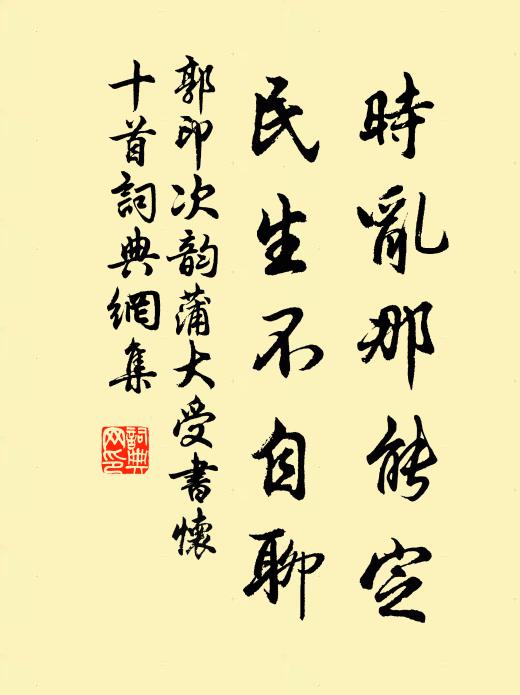 時亂那能定
民生不自聊
郭印次韵蒲大受書懷
十首詞典網集
詞典網印